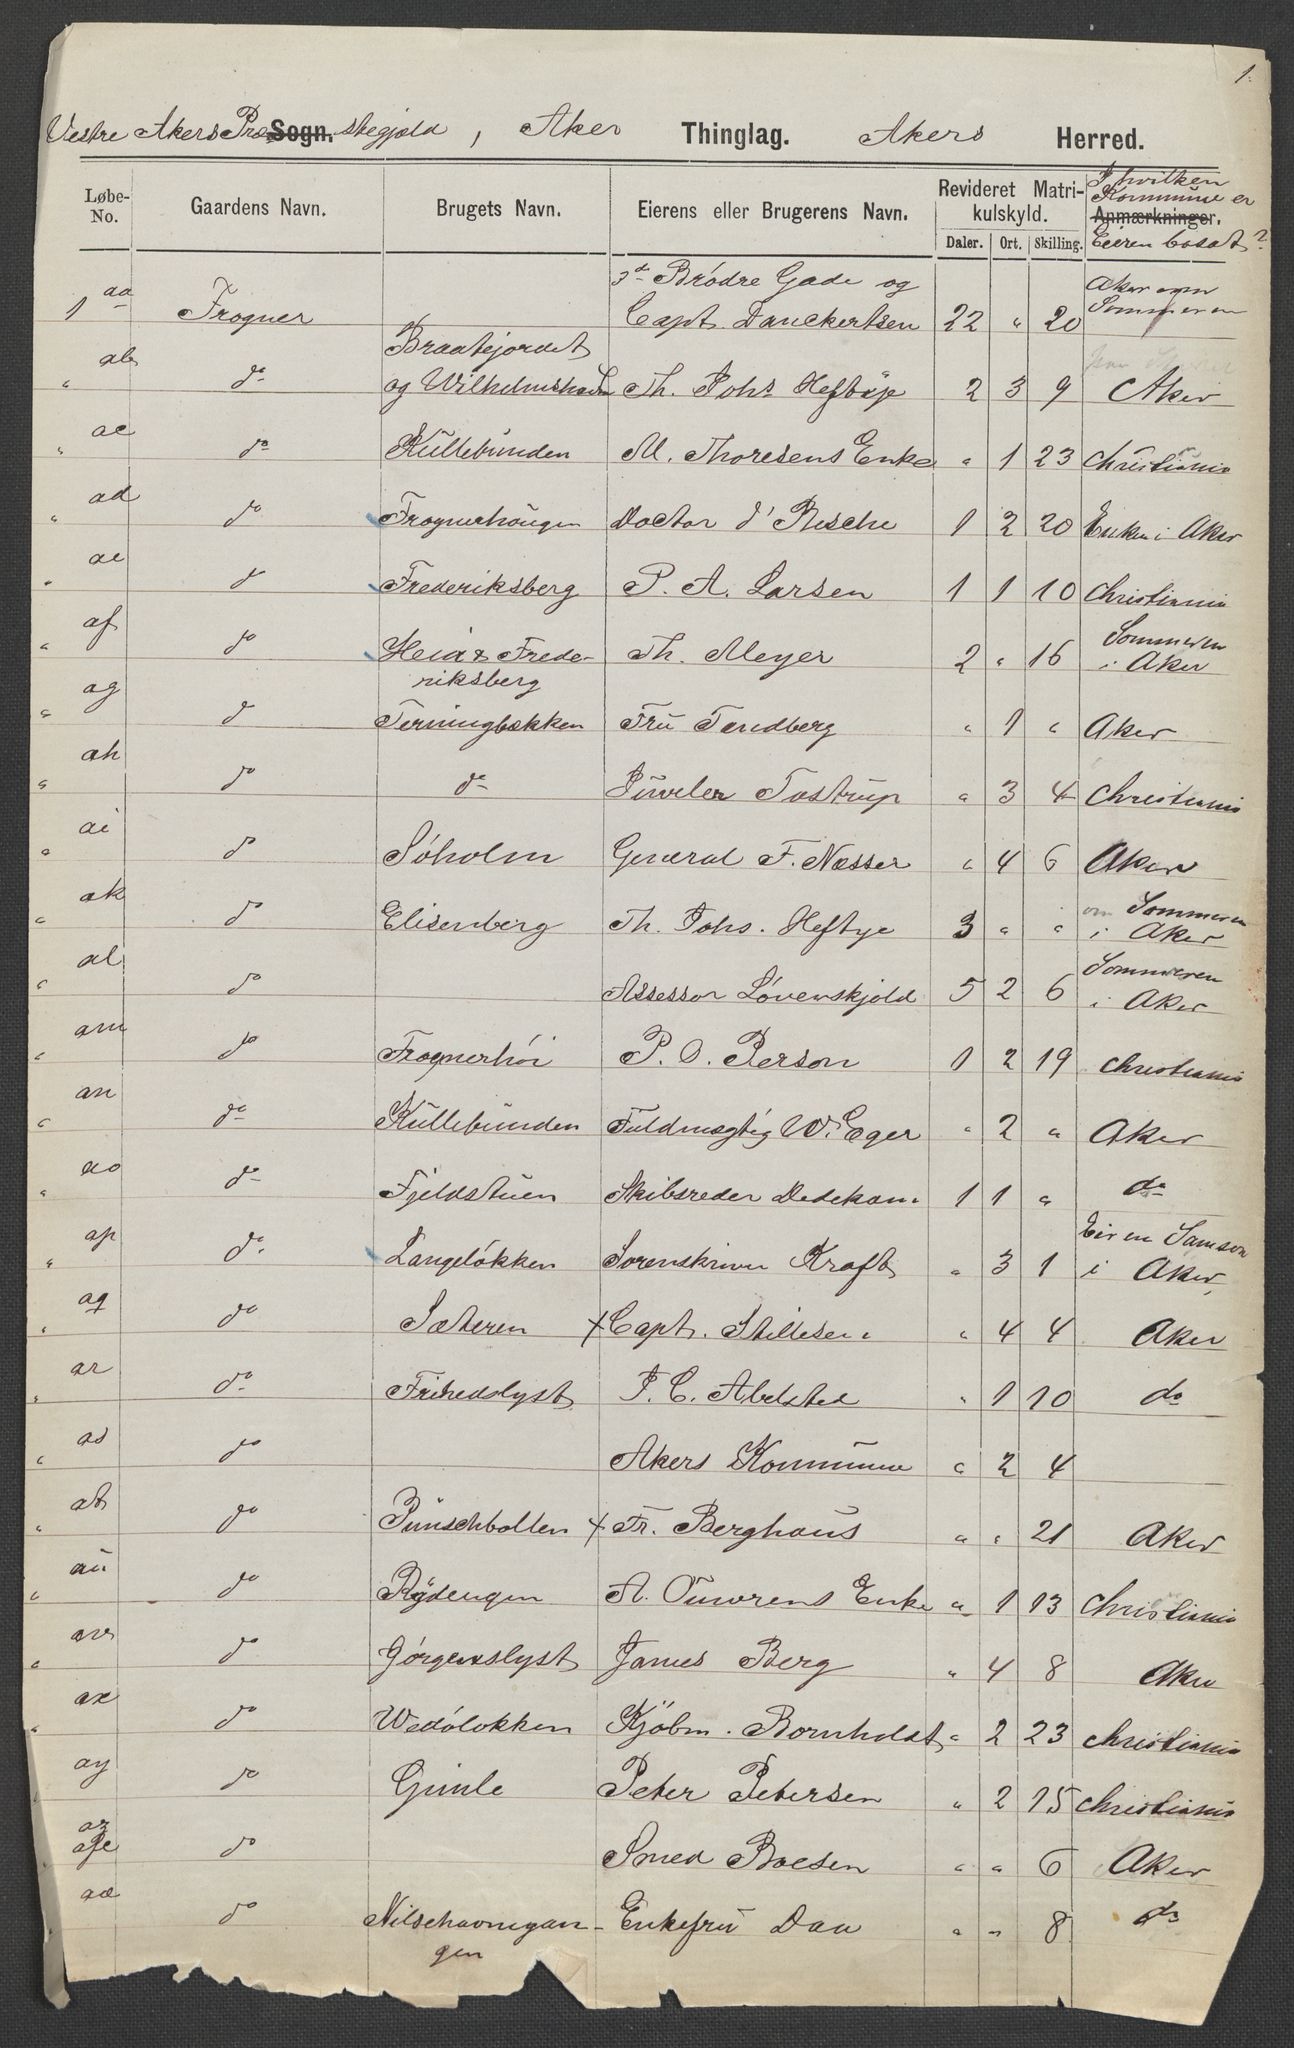 1.
Vestre Akers Præ Sogn. stegjeld, Aker Thinglag. Akers Herred.
Løbe-No. Gaardens Navn. Brugets Navn. Eierens eller Brugerens Navn. Revideret Matrikulskyld. Daler. Ort. Skilling. Anmærkninger. I hvilken Kommune er Eieren bosat?
1 aa Frogner Brødre Gade og Capt. Danckertsen 22 " 20 Aker om Sommeren
" ab do Braatejordet og Th. Johs Heftye 2 3 9 Aker
" ac do Kullebunden M. Thoresens Enke " 1 23 Christiania
" ad do Frognerhaugen Doctor 1 2 20 Enken i Aker
" ae do Frederiksberg P. A. Larsen 1 1 10 Christiania
" af do Heia & Frede-
riksberg Th. Meyer 2 " 16 Sommeren i Aker
" ag do Terningbækken Fru Tandberg " 1 " Aker
" ah do do Juveler Tostrup " 3 4 Christiania
" ai do Søholm General F. Næsser " 4 6 Aker
" ak do Elisenberg Th. Johs. Heftye 3 " " om Sommeren i Aker
" al do Assessor Løvenskjold 5 2 6 Sommeren i Aker
" am do Frognerhøi P. O. Person 1 2 19 Christiania
" an do Kullebunden Fuldmægtig W. Eger " 2 " Aker
" ao do Fjeldstuen Skibsreder Dedekam 1 1 " do
" ap do Langeløkken Sorenskriver Kraft " 3 1 i Aker
" aq do Sæteren x Capt. Stillesen " 4 4 Aker
" ar do Frihedslyst J. C. Abelsted " 1 10 do
" as do Akers Kommune " 2 4
" at do Punschbollen x Fr. Berghaus " " 21 Aker
" au do Rydengen A. Enke " 1 13 Christiania
" av do Gørgenslyst James Berg " 4 8 Aker
" ax do Wedøløkken Kjøbm. Bornholdt " 2 23 Christiania
" ay do Gimle Peter Petersen " 2 15 Christiania
az do Smed Boesen " " 6 Aker
aæ do Nilsehavnegan-
gen Enkefru Daa " " 8 do